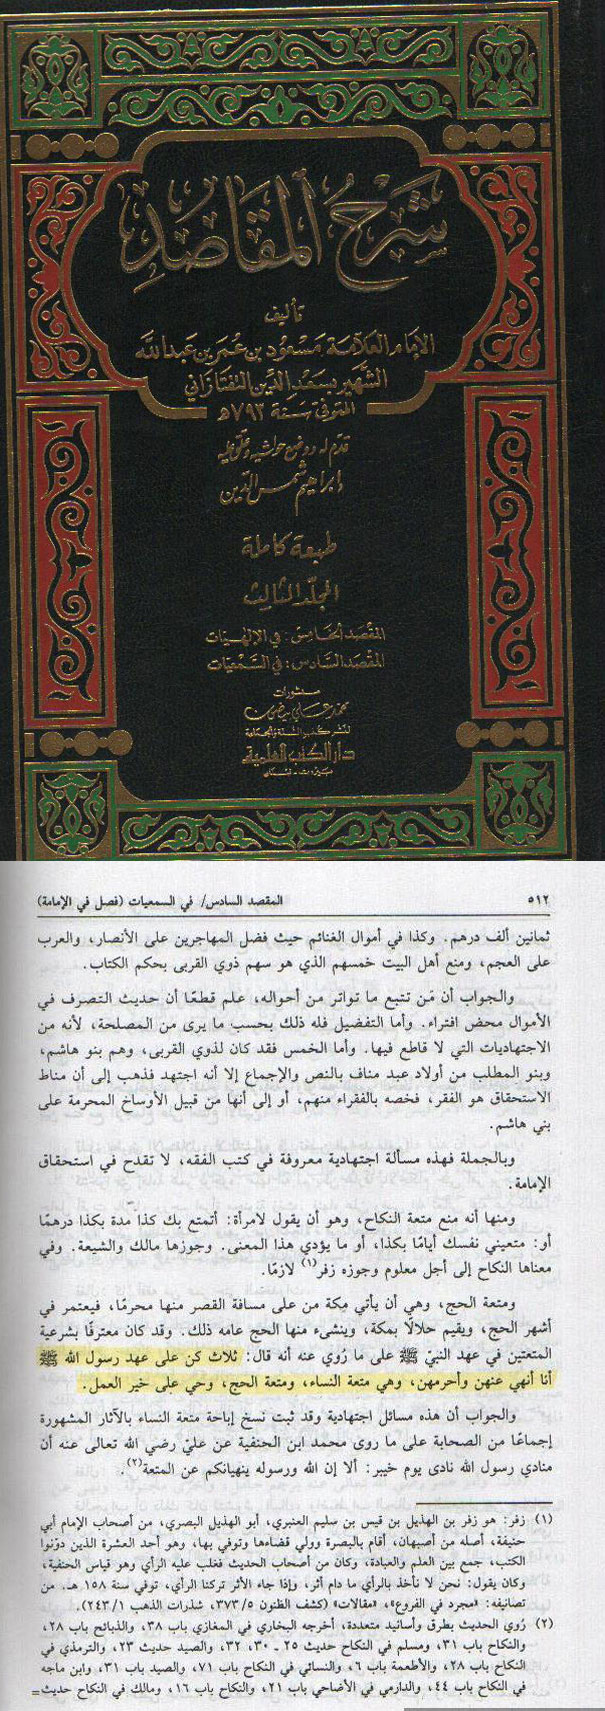 شرح المقاصد
تأليف
الإمام العلامة مسعود بن عمر بن عبد الله
الشهير بسعد الدين التفتازاني
المتوفى سنة ٧٩٣هـ
قدم له ووضع حواشيه وعلق عليه
إبراهيم شمس الدين
طبعة كاملة
المجلد الثالث
المقصد الخامس: في الإلهيات
المقصد السادس: في السمعيات
منشورات
محمد علي بيضون
لنشر كتب السنة والجماعة
دار الكتب العلمية
بيروت - لبنان
٥١٢ المقصد السادس/ في السمعيات (فصل في الإمامة)
ثمانين ألف درهم. وكذا في أموال الغنائم حيث فضل المهاجرين على الأنصار، والعرب
على العجم، ومنع أهل البيت خمسهم الذي هو سهم ذوي القربى بحكم الكتاب.
والجواب أن مَن تتبع ما تواتر من أحواله، علم قطعًا أن حديث التصرف في
الأموال محض افتراء. وأما التفضيل فله ذلك بحسب ما يرى من المصلحة، لأنه من
الاجتهاديات التي لا قاطع فيها. وأما الخمس فقد كان لذوي القربى، وهم بنو هاشم،
وبنو المطلب من أولاد عبد مناف بالنص والإجماع إلا أنه اجتهد فذهب إلى أن مناط
الاستحقاق هو الفقر، فخصه بالفقراء منهم، أو إلى أنها من قبيل الأوساخ المحرمة على
بني هاشم.
وبالجملة فهذه مسألة اجتهادية معروفة في كتب الفقه، لا تقدح في استحقاق
الإمامة.
ومنها أنه منع متعة النكاح، وهو أن يقول لامرأة: أتمتع بك كذا مدة بكذا درهمًا
أو: متعيني نفسك أيامًا بكذا، أو ما يؤدي هذا المعنى. وجوزها مالك والشيعة. وفي
معناها النكاح إلى أجل معلوم وجوزه زفر(١) لازمًا.
ومتعة الحج، وهي أن يأتي مكة من على مسافة القصر منها محرمًا، فيعتمر في
أشهر الحج، ويقيم حلالًا بمكة، وينشىء منها الحج عامه ذلك. وقد كان معترفًا بشرعية
المتعتين في عهد النبيّ ﷺ على ما رُوي عنه أنه قال: ثلاث كن على عهد رسول الله ﷺ
أنا أنهي عنهن وأحرمهن، وهي متعة النساء، ومتعة الحج، وحي على خير العمل.
والجواب أن هذه مسائل اجتهادية وقد ثبت نسخ إباحة متعة النساء بالآثار المشهورة
إجماعًا من الصحابة على ما روى محمد ابن الحنفية عن عليّ رضي الله تعالى عنه أن
منادي رسول الله نادى يوم خيبر: ألا إن الله ورسوله ينهيانكم عن المتعة(٢).
(١) زفر: هو زفر بن الهذيل بن قيس بن سليم العنبري، أبو الهذيل البصري، من أصحاب الإمام أبي
حنيفة، أصله من أصبهان، أقام بالبصرة وولي قضاءها وتوفي بها، وهو أحد العشرة الذين دوّنوا
الكتب، جمع بين العلم والعبادة، وكان من أصحاب الحديث فغلب عليه الرأي وهو قياس الحنفية،
وكان يقول: نحن لا نأخذ بالرأي ما دام أثر، وإذا جاء الأثر تركنا الرأي، توفي سنة ١٥٨ هـ. من
تصانيفه: «مجرد في الفروع»، «مقالات» (كشف الظنون ٣٧٣/٥، شذرات الذهب ٢٤٣/١)
(٢) رُوي الحديث بطرق وأسانيد متعددة، أخرجه البخاري في المغازي باب ٣٨، والذبائح باب ٢٨،
والنكاح باب ٣١، ومسلم في النكاح حديث ٢٥ - ٣٠، ٣٢، والصيد حديث ٢٣، والترمذي في
النكاح باب ٢٨، والأطعمة باب ٦، والنسائي في النكاح باب ٧١، والصيد باب ٣١، وابن ماجه
في النكاح باب ٤٤، والدارمي في الأضاحي باب ٢١، والنكاح باب ١٦، ومالك في النكاح حديث=